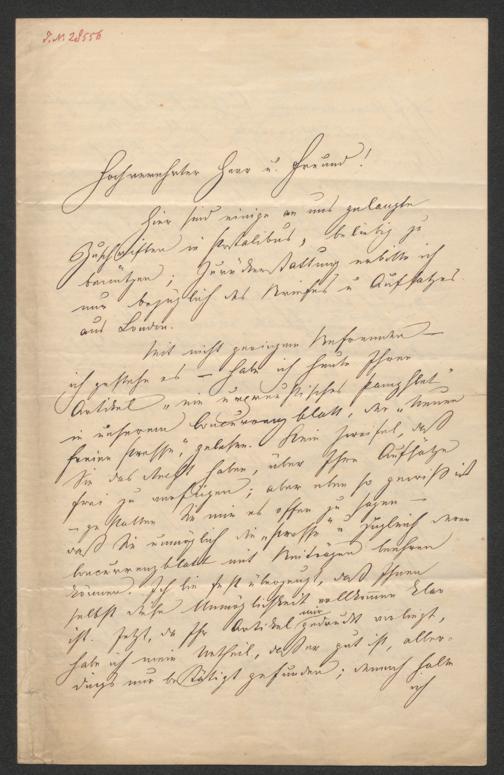 J. N. 28556
Hochverehrter Herr u. Freund!
Hier sind einige an uns gelangte
Zuschriften in , beliebig zu
benützen; Zurückerstattung erbitte ich
nur bezüglich des Briefes u Aufsatzes
aus London.
Mit nicht geringem Befremden —
ich gestehe es — habe ich heute Ihren
Artikel „ein Pamphlet"
in unserem Concurrenzblatt, der „Neuen
freien Presse", gelesen. Kein Zweifel, daß
Sie das Recht haben, über Ihre Aufsätze
frei zu verfügen; aber eben so gewiß ist
— gestatten Sie mir es offen zu sagen —
daß Sie unmöglich die „Presse" u zugleich deren
Concurrenzblatt mit Beiträgen beehren
können. Ich bin fest überzeugt, daß Ihnen
selbst diese Unmöglichkeit vollkommen klar
ist. Jetzt, da Ihr Artikel mir gedruckt vorliegt,
habe ich mein Urtheil, daß er gut ist, aller-
dings nur bestätigt gefunden; demnach halte
ich